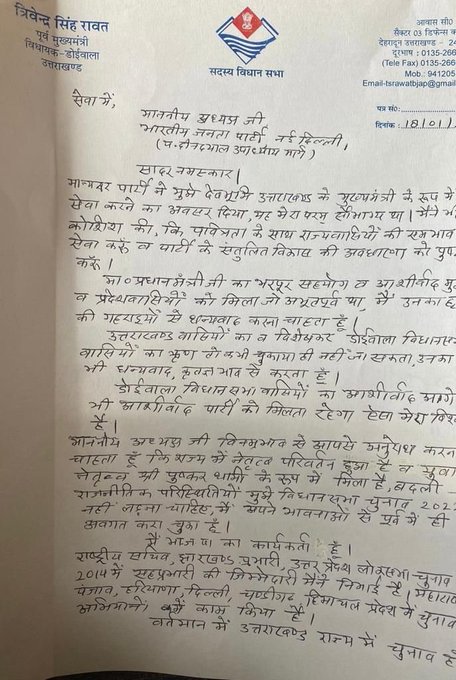 त्रिवेन्द्र सिंह रावत
पूर्व मुख्यमंत्री
विधायक-डोईवाला
उत्तराखण्ड
सदस्य विधान सभा
आवास सी0
सैक्टर 03 डिफेन्स क
देहरादून उत्तराखण्ड - 24
दूरभाष : 0135-266
(Tele Fax) 0135-266
Mob.: 941205
Email-tsrawatbjap@gmail
पत्र सं0:
दिनांक : 18/01/
सेवा में,
माननीय अध्यक्ष जी
भारतीय जनता पार्टी नई दिल्ली,
(पं. दीनदयाल उपाध्याय मार्ग)
सादर नमस्कार।
मान्यवर पार्टी ने मुझे देवभूमि उत्तराखण्ड के मुख्यमंत्री के रूप में
सेवा करने का अवसर दिया, यह मेरा परम सौभाग्य था। मैंने भी
कोशिश की, कि पवित्रता के साथ राज्यवासियों की समभाव
सेवा करूँ व पार्टी के संतुलित विकास की अवधारणा को पुष्ट
करूँ।
मा० प्रधानमंत्री जी का भरपूर सहयोग व आशीर्वाद मु
व प्रदेशवासियों को मिला जो अभूतपूर्व था, मैं उनका हृ
की गहराइयों से धन्यवाद करना चाहता हूँ।
उत्तराखण्ड वासियों का व विशेषकर डोईवाला विधानसभ
वासियों का ऋण तो कभी चुकाया ही नहीं जा सकता, उनका
भी धन्यवाद, कृतज्ञ भाव से करता हूँ।
डोईवाला विधानसभा वासियों का आशीर्वाद आगे
भी आशीर्वाद पार्टी को मिलता रहेगा ऐसा मेरा विश्व
है।
माननीय अध्यक्ष जी विनम्रभाव से आपसे अनुरोध करन
चाहता हूँ कि राज्य में नेतृत्व परिवर्तन हुआ है व युवा
नेतृत्व श्री पुष्कर धामी के रूप में मिला है, बदली
राजनीतिक परिस्थितियों मुझे विधानसभा चुनाव 2022
नहीं लड़ना चाहिए, मैं अपने भावनाओं से पूर्व में ही
अवगत करा चुका हूँ।
मैं भाजपा का कार्यकर्ता हूँ।
राष्ट्रीय सचिव, झारखण्ड प्रभारी, उत्तर प्रदेश लोकसभा-चुनाव
2014 में सहप्रभारी की जिम्मेदारी मैंने निभाई है। महारा
पंजाब, हरियाणा, दिल्ली, चण्डीगढ़ हिमाचल प्रदेश में चुनाव
अभियानों में काम किया है।
वर्तमान में उत्तराखण्ड राज्य में चुनाव है